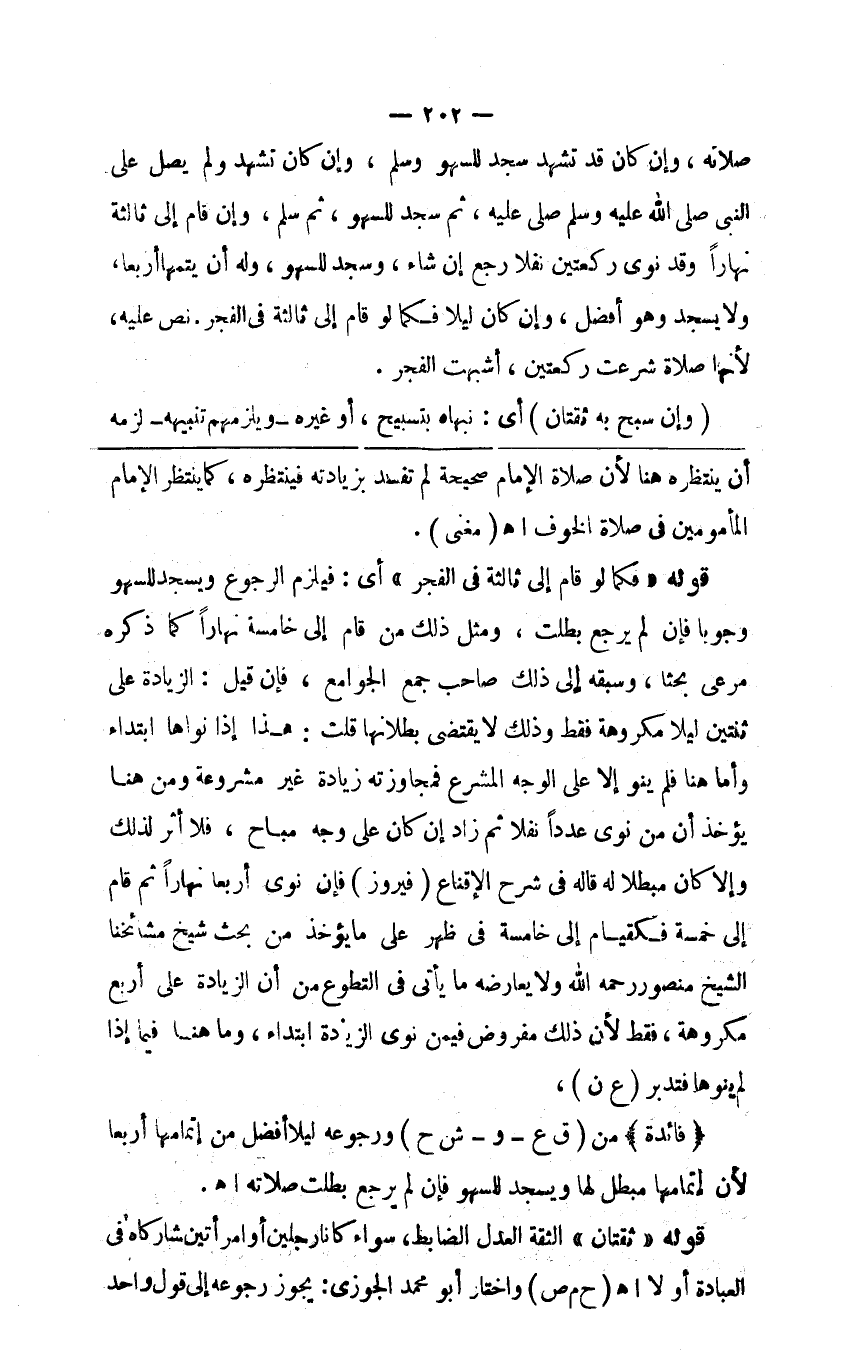 — ٢٠٢ —
صلاته ، وإن كان قد تشهد سجد للسهو وسلم ، وإن كان تشهد ولم يصل على
النبى صلى الله عليه وسلم صلى عليه ، ثم سجد للسهو ، ثم سلم ، وإن قام إلى ثالثة
نهاراً وقد نوى ركعتين نفلا رجع إن شاء ، وسجد للسهو ، وله أن يتمها أربعا ،
ولا يسجد وهو أفضل ، وإن كان ليلا فكما لو قام إلى ثالثة فى الفجر . نص عليه ،
لأنها صلاة شرعت ركعتين ، أشبهت الفجر .
( وإن سبح به ثقتان ) أى : نبهاه بتسبيح ، أو غيره ـ ويلزمهم تنبيهه ـ لزمه
أن ينتظره هنا لأن صلاة الإمام صحيحة لم تفسد بزيادته فينتظره ، كما ينتظر الإمام
المأمومين فى صلاة الخوف ا ه ( مغنى ) .
قوله « فكما لو قام إلى ثالثة فى الفجر » أى : فيلزم الرجوع ويسجد للسهو
وجوبا فإن لم يرجع بطلت ، ومثل ذلك من قام إلى خامسة نهاراً كما ذكره
مرعى بحثا ، وسبقه إلى ذلك صاحب جمع الجوامع ، فإن قيل : الزيادة على
ثنتين ليلا مكروهة فقط وذلك لا يقتضى بطلانها قلت : هذا إذا نواها ابتداء
وأما هنا فلم ينو إلا على الوجه المشرع فمجاوزته زيادة غير مشروعة ومن هنا
يؤخذ أن من نوى عدداً نفلا ثم زاد إن كان على وجه مباح ، فلا أثر لذلك
وإلا كان مبطلا له قاله فى شرح الإقناع ( فيروز ) فإن نوى أربعا نهاراً ثم قام
إلى خمسة فكقيام إلى خامسة فى ظهر على ما يؤخذ من بحث شيخ مشائخنا
الشيخ منصور رحمه الله ولا يعارضه ما يأتى فى التطوع من أن الزيادة على أربع
مكروهة ، فقط لأن ذلك مفروض فيمن نوى الزيادة ابتداء ، وما هنا فيما إذا
لم ينوها فتدبر ( ع ن ) ،
﴿ فائدة ﴾ من ( ق ع ـ و ـ ش ح ) ورجوعه ليلا أفضل من إتمامها أربعا
لأن إتمامها مبطل لها ويسجد للسهو فإن لم يرجع بطلت صلاته ا ه .
قوله « ثقتان » الثقة العدل الضابط ، سواء كانا رجلين أو امرأتين شاركاه فى
العبادة أو لا ا ه ( ح م ص ) واختار أبو محمد الجوزى : يجوز رجوعه إلى قول واحد